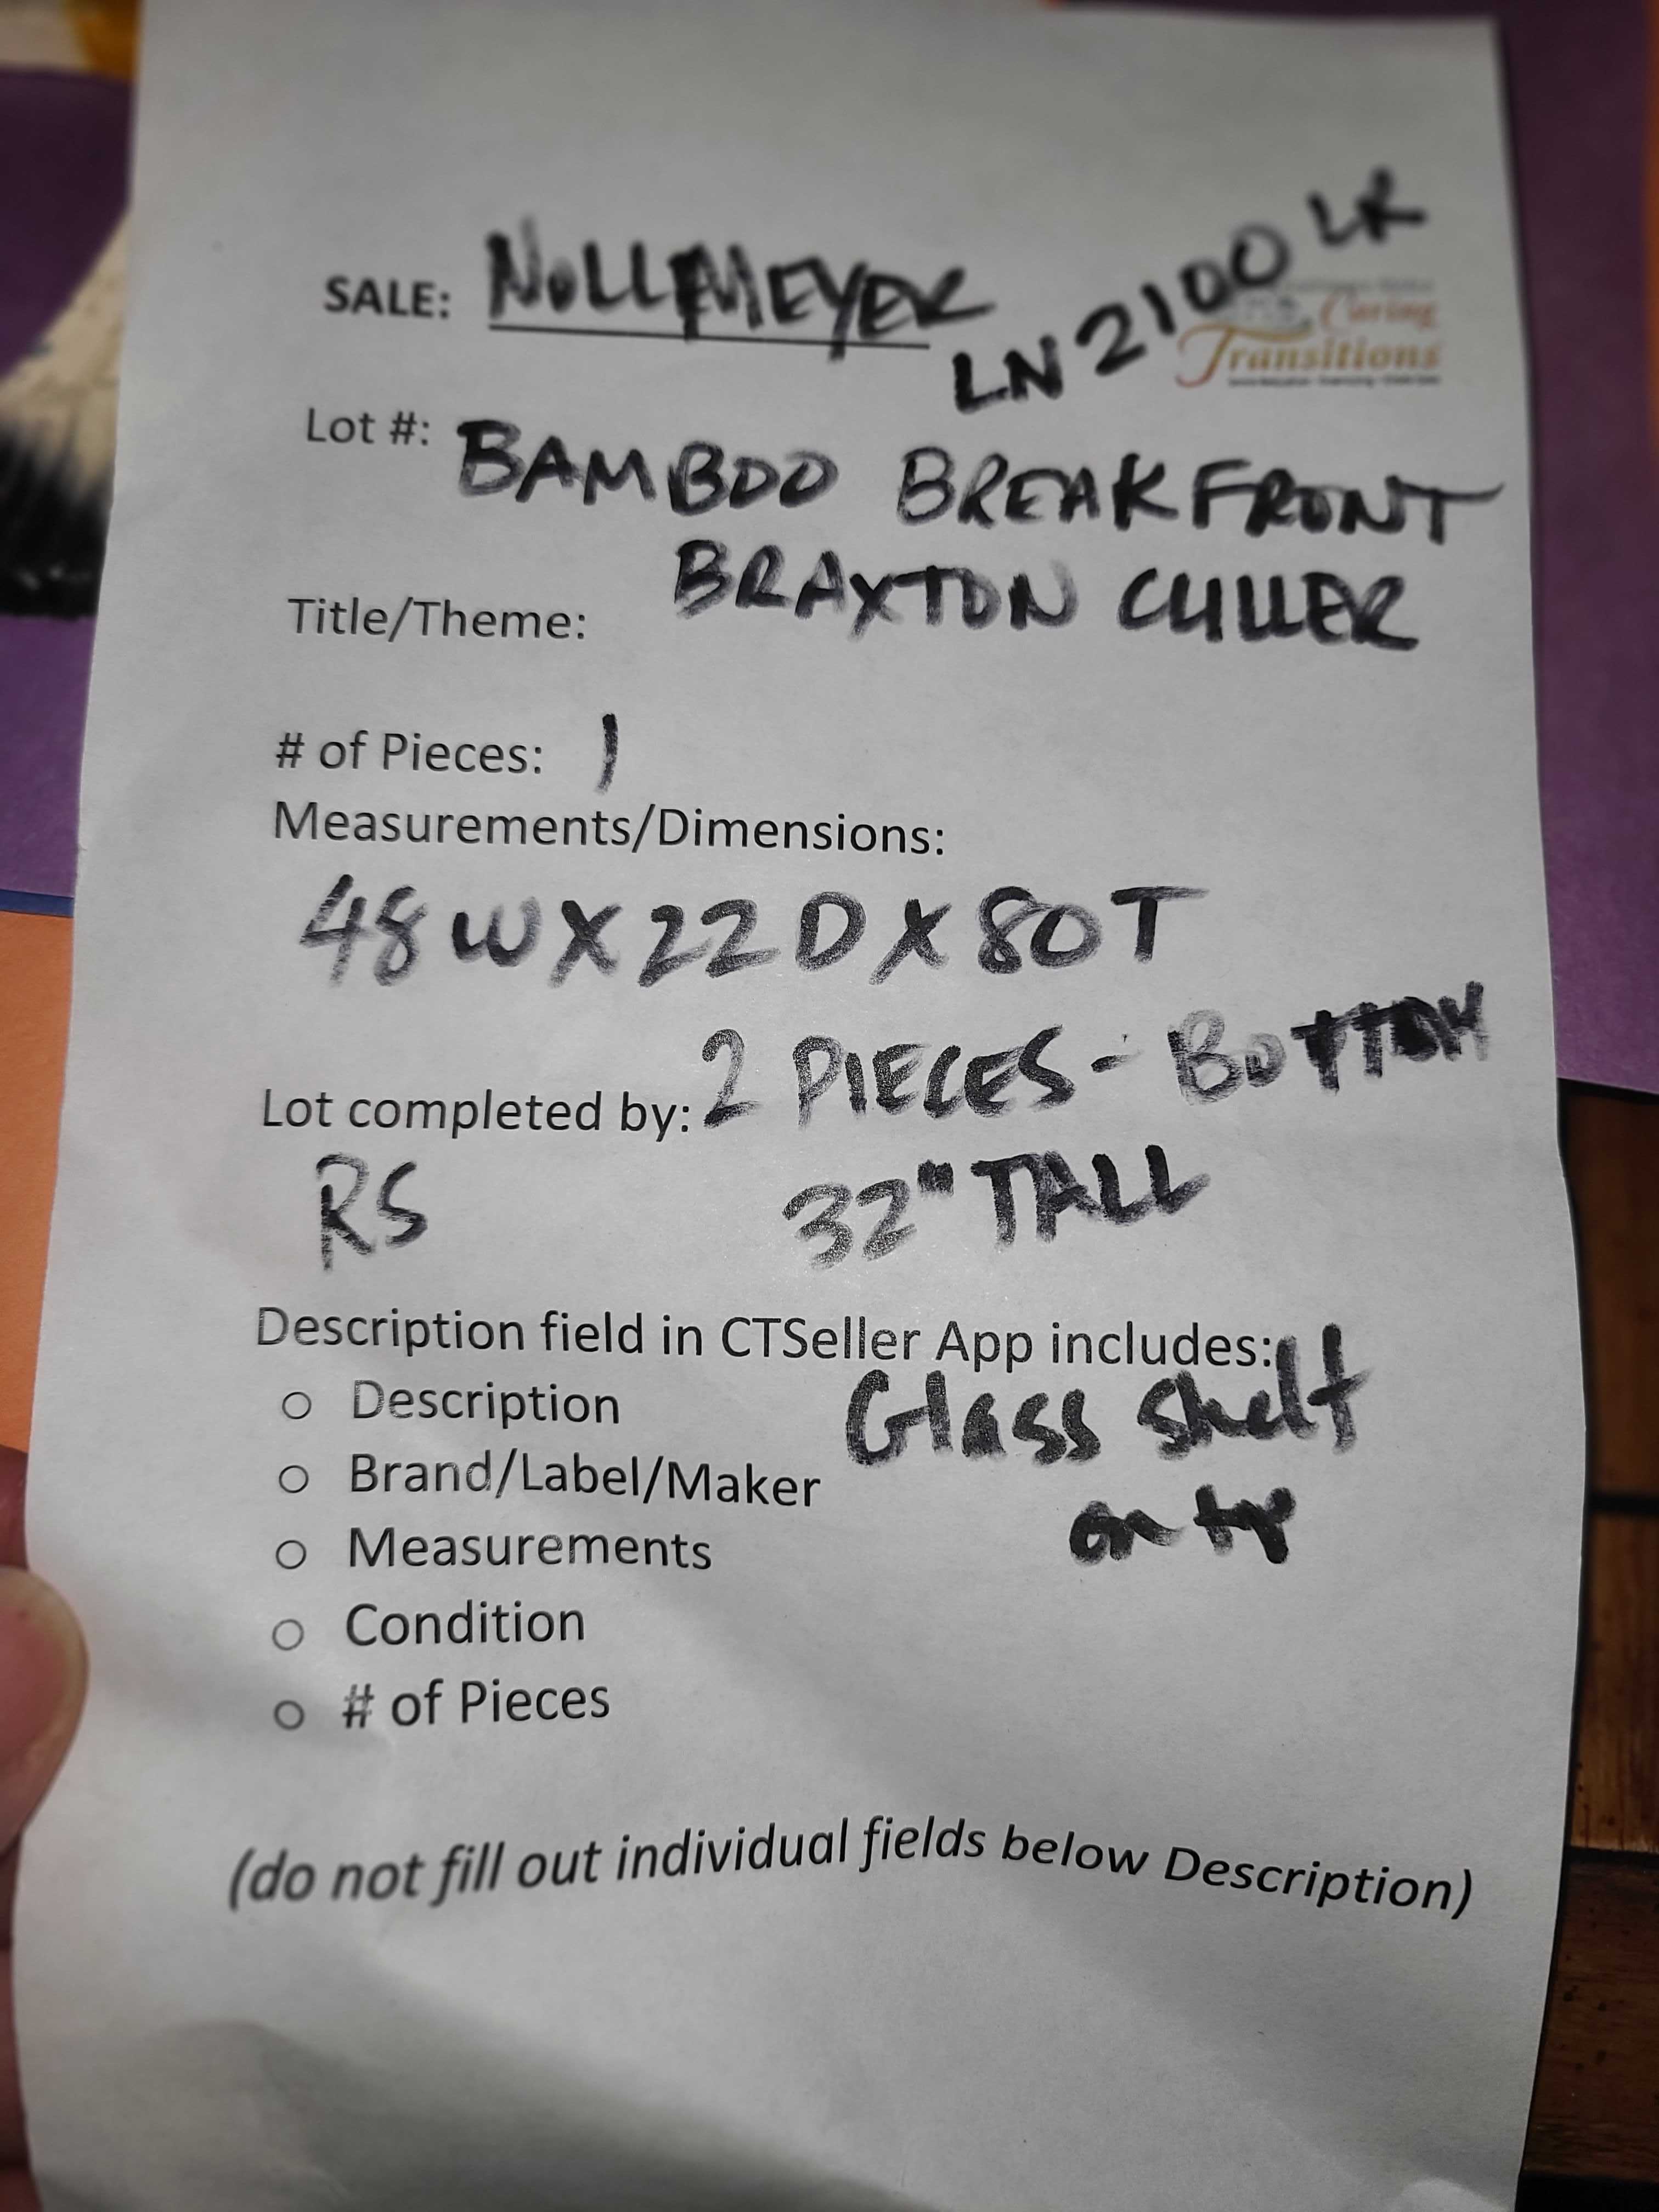 SALE: NOLLMEYER
LN 2100 LR
Caring
Transitions
Lot #: BAMBOO BREAKFRONT
BRAXTON CULLER
Title/Theme:
# of Pieces: 1
Measurements/Dimensions:
48 W X 22 D X 80 T
2 PIECES - BOTTOM
Lot completed by:
RS 32" TALL
Description field in CTSeller App includes:
o Description
Glass shelf
o Brand/Label/Maker
on top
o Measurements
o Condition
o # of Pieces
(do not fill out individual fields below Description)